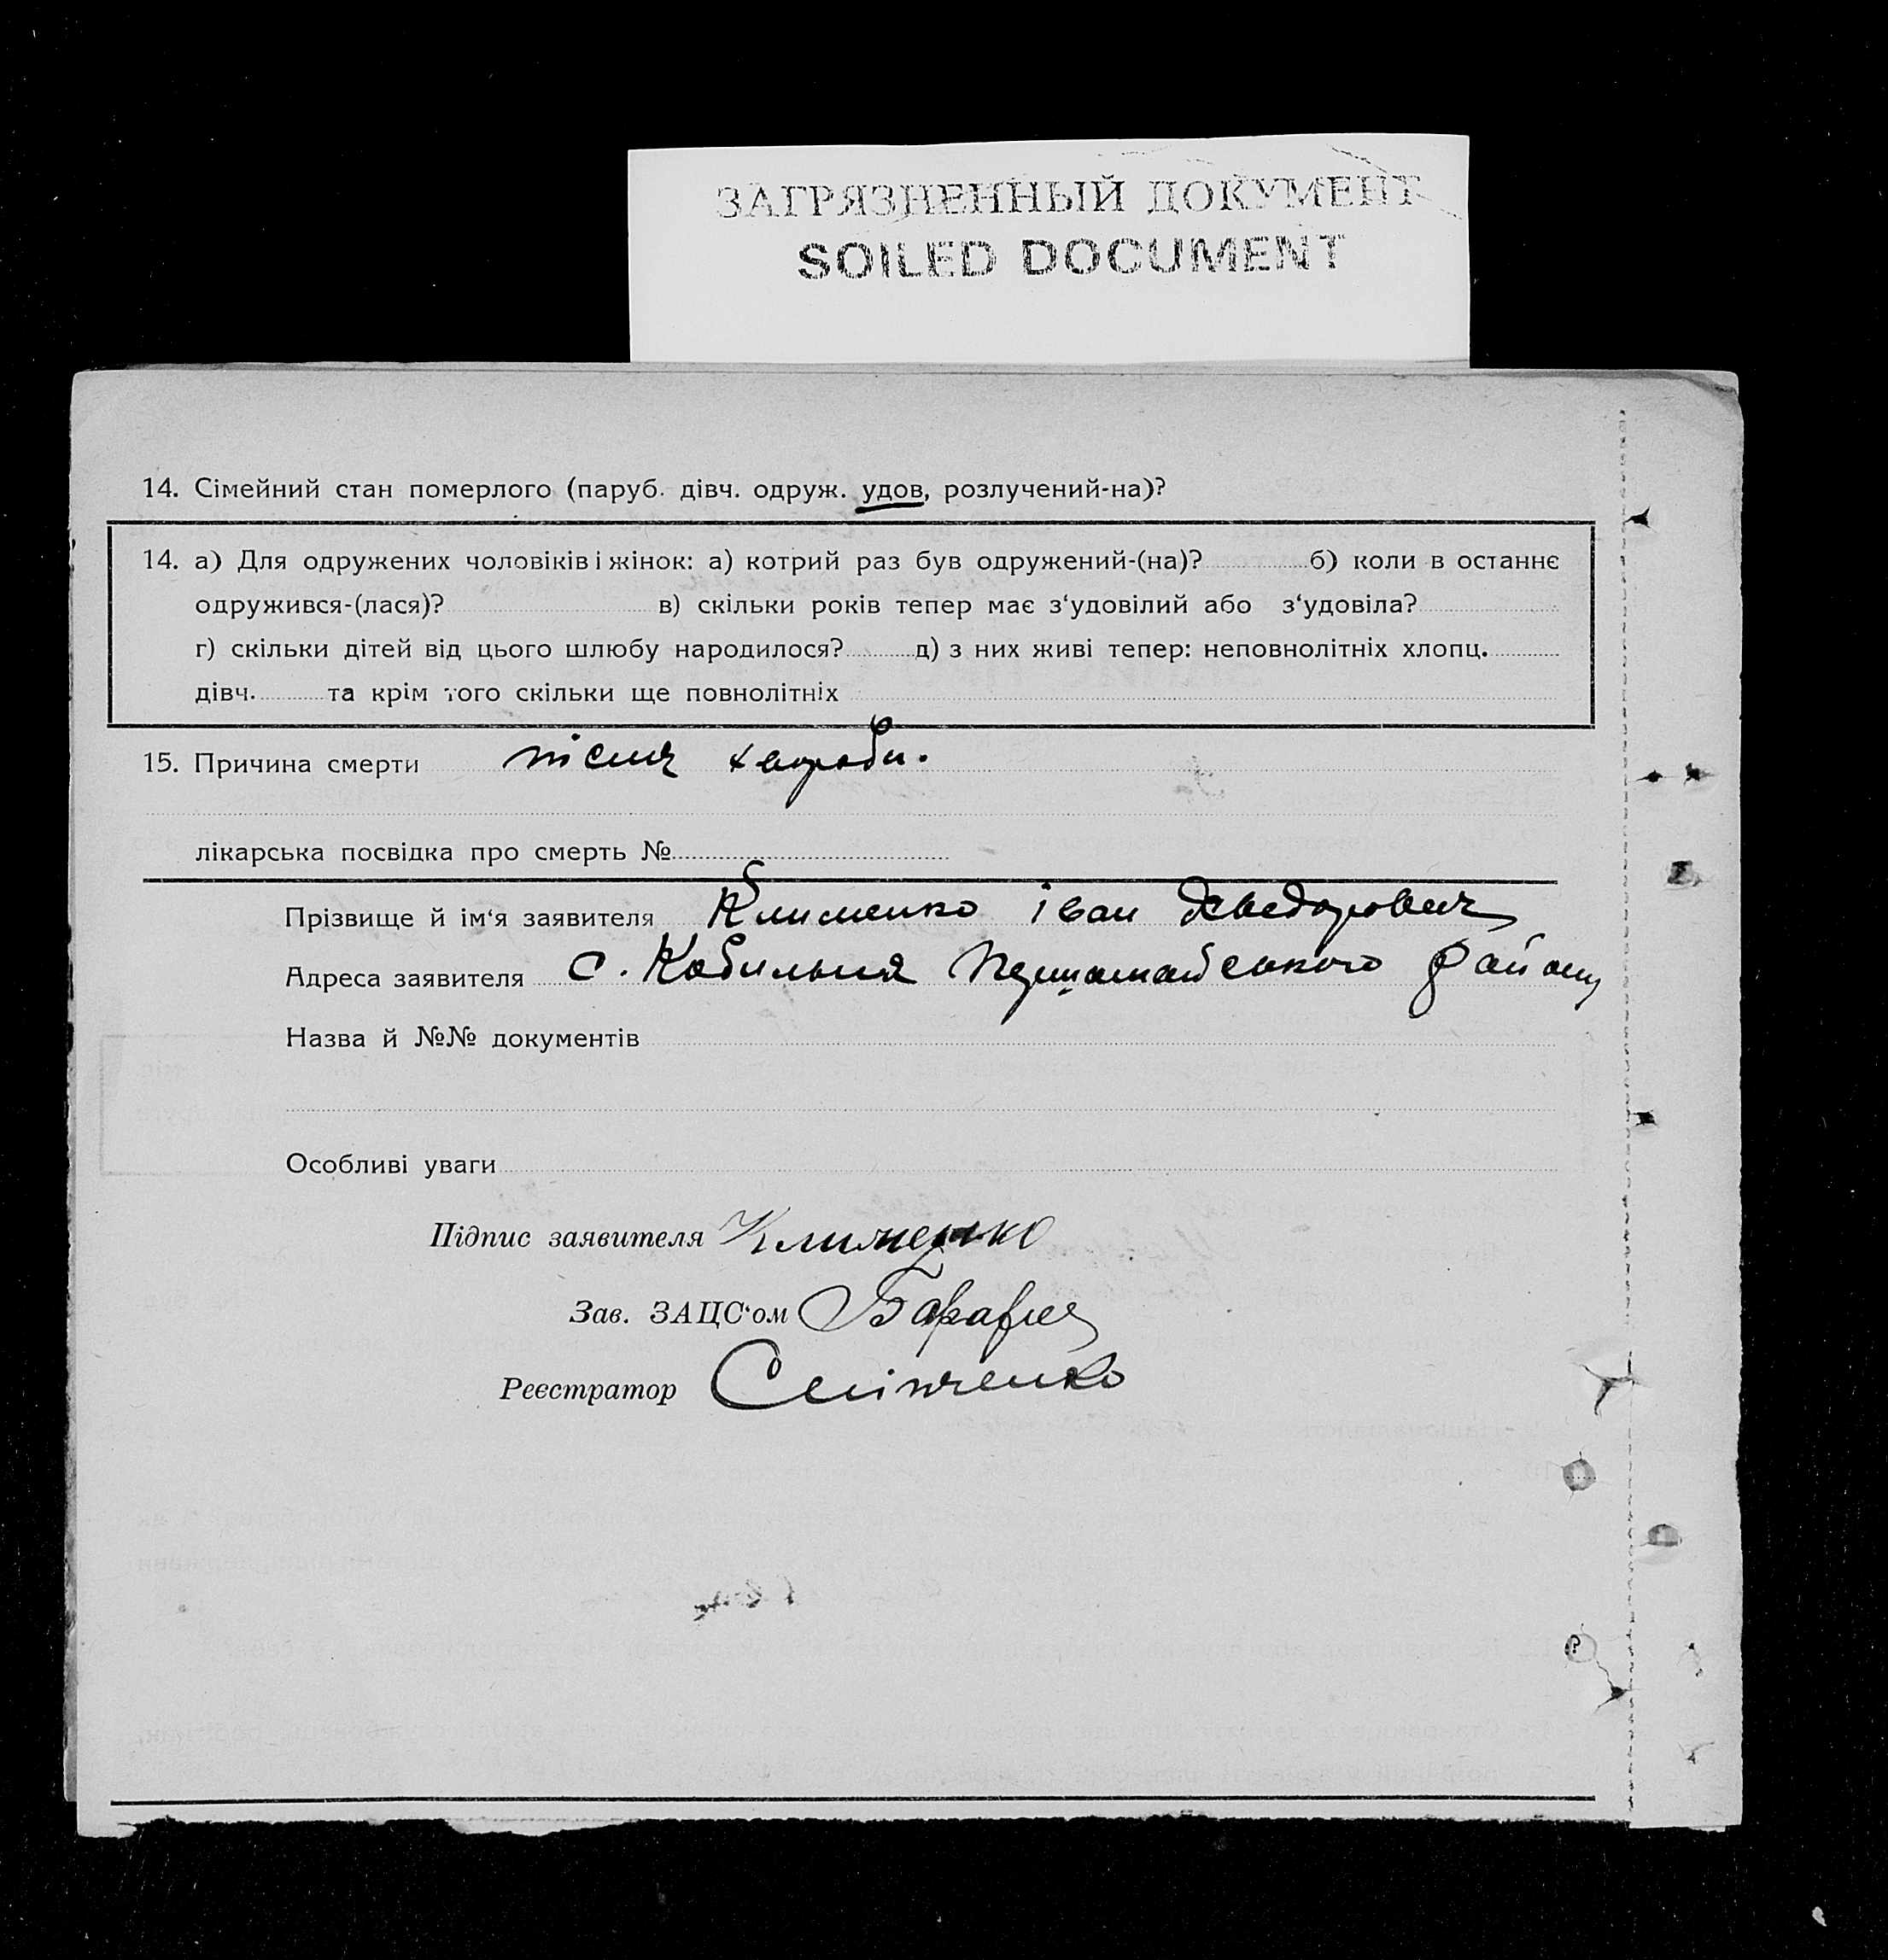 ЗАГРЯЗНЕННЫЙ ДОКУМЕНТ
SOILED DOCUMENT
14. Сімейний стан померлого (паруб. дівч. одруж. удов, розлучений-на)?
14. а) Для одружених чоловіків і жінок: а) котрий раз був одружений-(на)? б) коли в останнє
одружився-(лася)? в) скільки років тепер має з‘удовілий або з‘удовіла?
г) скільки дітей від цього шлюбу народилося? д) з них живі тепер: неповнолітніх хлопц.
дівч. та крім того скільки ще повнолітніх
15. Причина смерти після хвороби.
лікарська посвідка про смерть №
Прізвище й ім‘я заявителя Клименко Іван
Адреса заявителя с. Кобильня району
Назва й №№ документів
Особливі уваги
Підпис заявителя Клименко
Зав. ЗАЦС‘ом
Реєстратор